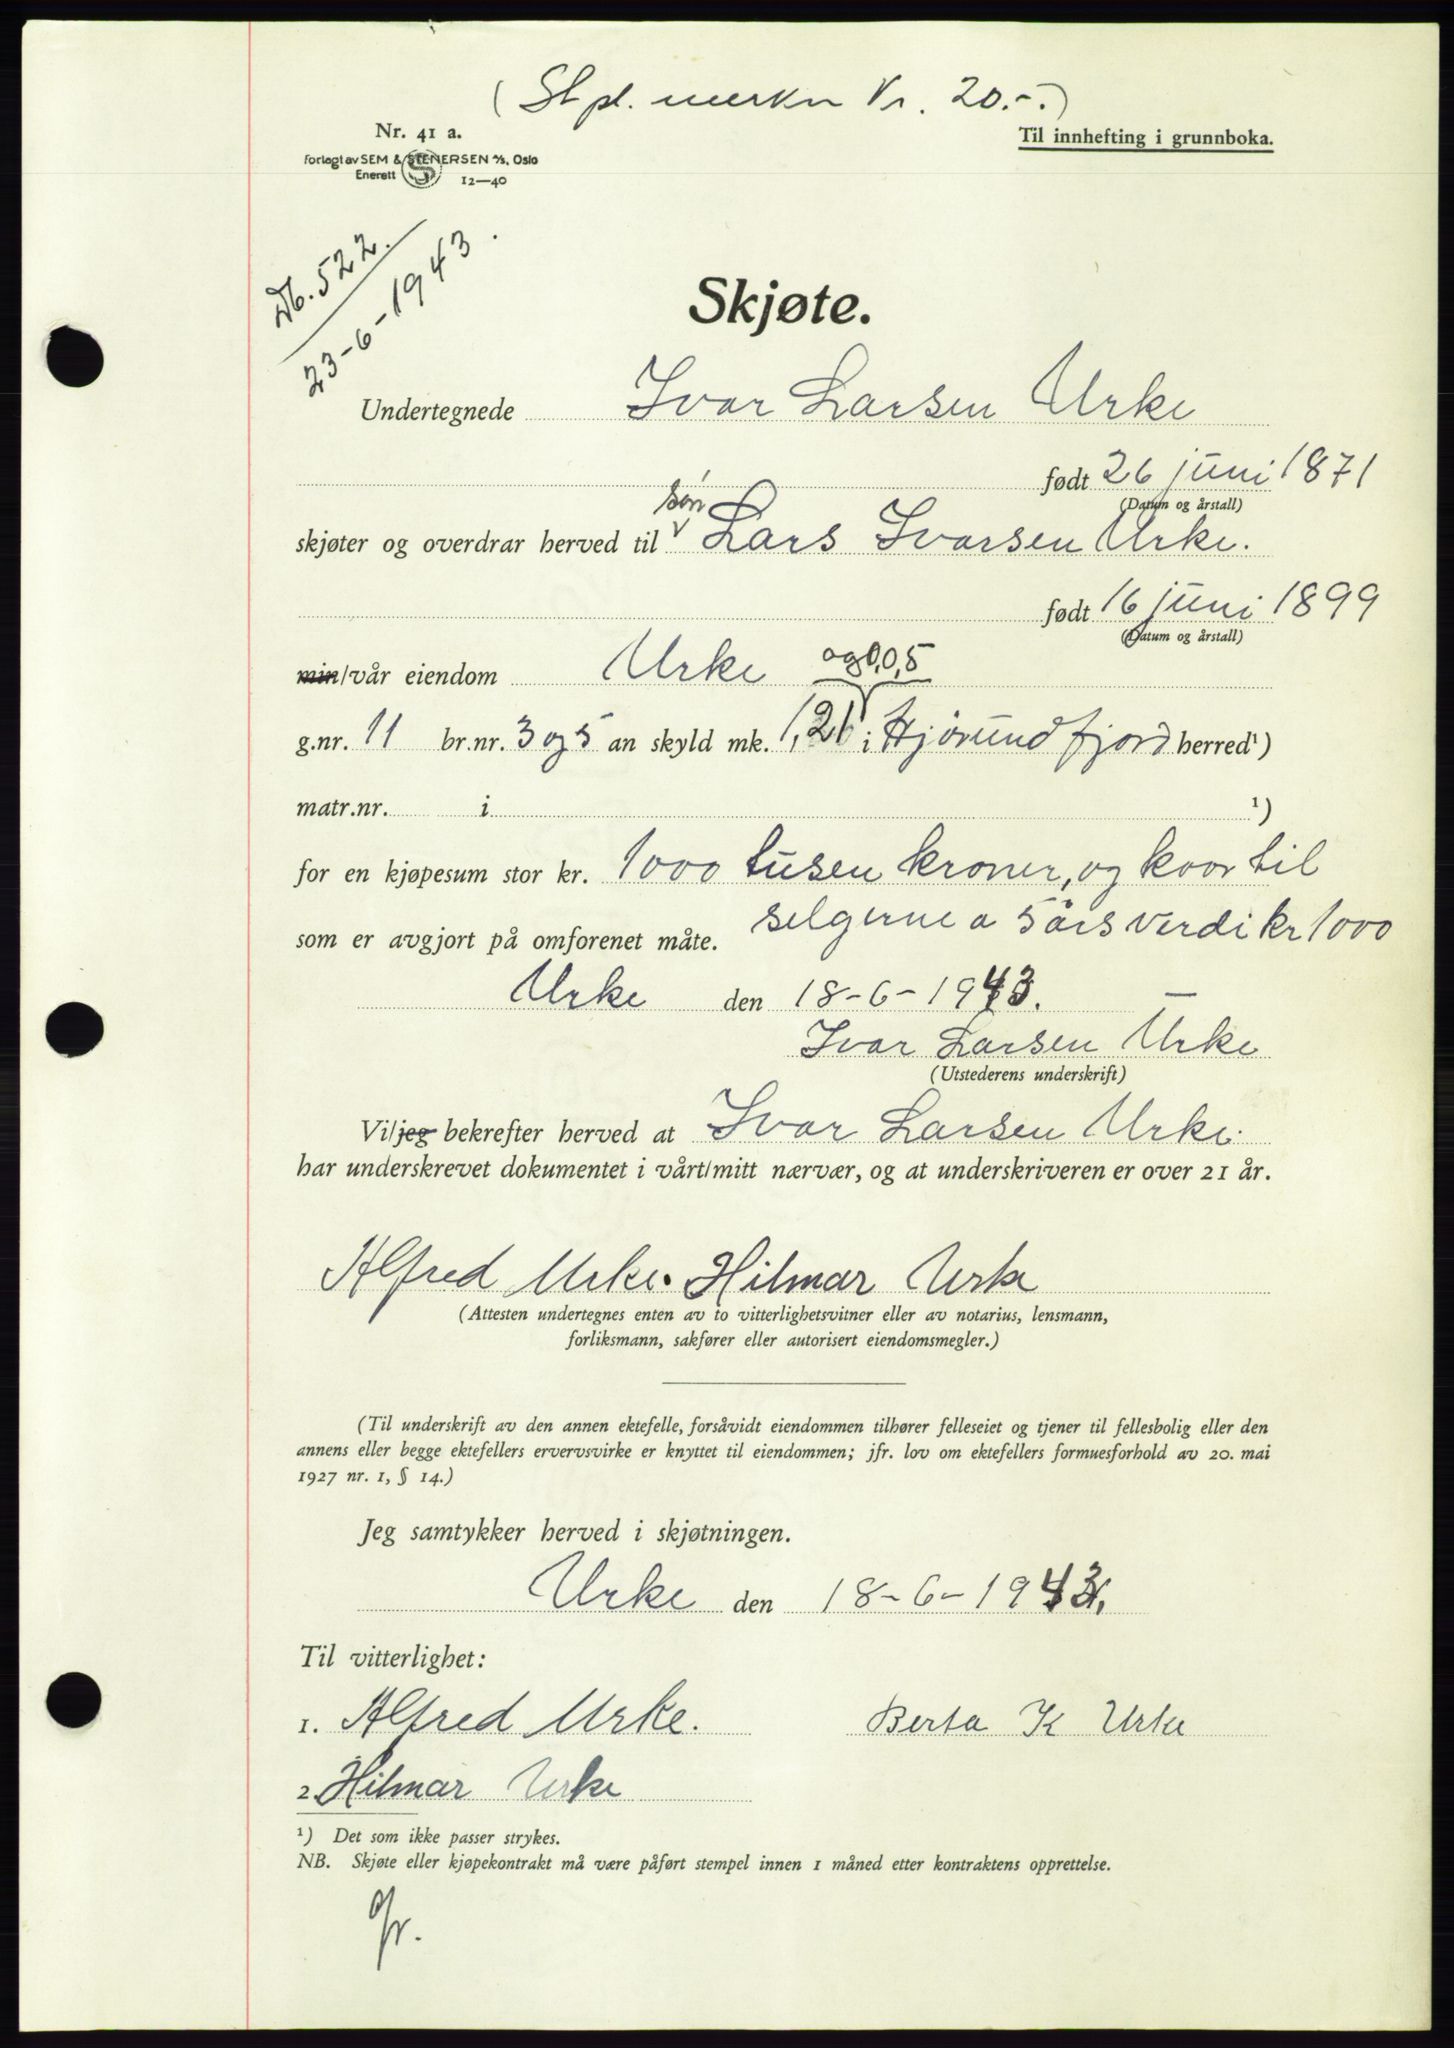 (Stpl. merker kr. 20.-.)
Nr. 41 a.
Til innhefting i grunnboka.
Forlagt av SEM & STENERSEN A/S, Oslo
Enerett 12—40
Db. 522.
23-6-1943.
Skjøte.
Undertegnede Ivar Larsen Urke
født 26 juni 1871
(Datum og årstall)
søn
skjøter og overdrar herved til Lars Ivarsen Urke.
født 16 juni 1899
(Datum og årstall)
min/vår eiendom Urke og 0,05
g.nr. 11 br.nr. 3 og 5 an skyld mk. 1,21 i Hjørundfjord herred¹)
matr.nr. i ¹)
for en kjøpesum stor kr. 1000 tusen kroner, og koor til
som er avgjort på omforenet måte. selgerne a 5 års verdi kr 1000
Urke den 18-6-1943.
Ivar Larsen Urke
(Utstederens underskrift)
Vi/jeg bekrefter herved at Ivar Larsen Urke.
har underskrevet dokumentet i vårt/mitt nærvær, og at underskriveren er over 21 år.
Alfred Urke. Hilmar Urke
(Attesten undertegnes enten av to vitterlighetsvitner eller av notarius, lensmann,
forliksmann, sakfører eller autorisert eiendomsmegler.)
(Til underskrift av den annen ektefelle, forsåvidt eiendommen tilhører felleseiet og tjener til fellesbolig eller den
annens eller begge ektefellers ervervsvirke er knyttet til eiendommen; jfr. lov om ektefellers formuesforhold av 20. mai
1927 nr. 1, § 14.)
Jeg samtykker herved i skjøtningen.
Urke den 18-6-1943.
Til vitterlighet:
1. Alfred Urke. Berta K Urke
2. Hilmar Urke
¹) Det som ikke passer strykes.
NB. Skjøte eller kjøpekontrakt må være påført stempel innen 1 måned etter kontraktens opprettelse.